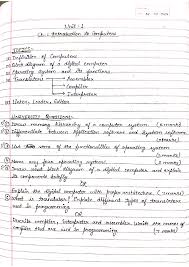 Unit - 1
Ch : Introduction to Computers
TOPICS:
Definition of Computers
Block diagram of a digital computer
Operating System and its functions
Translators → Assembler
→ Compiler
→ Interpreter
Library, Loader, Editor
UNIVERSITY QUESTIONS:
Draw memory hierarchy of a computer system
Differentiate between Application software and System software
List the functions of operating system
Name any four operating systems
Draw neat block diagram of a digital computer and explain
its components briefly
OR
Explain the digital computer with
What is translator? Explain different types of translators
used in programming
OR
Describe compiler, interpreter and assembler. Write the names of
compiler that are used in programming